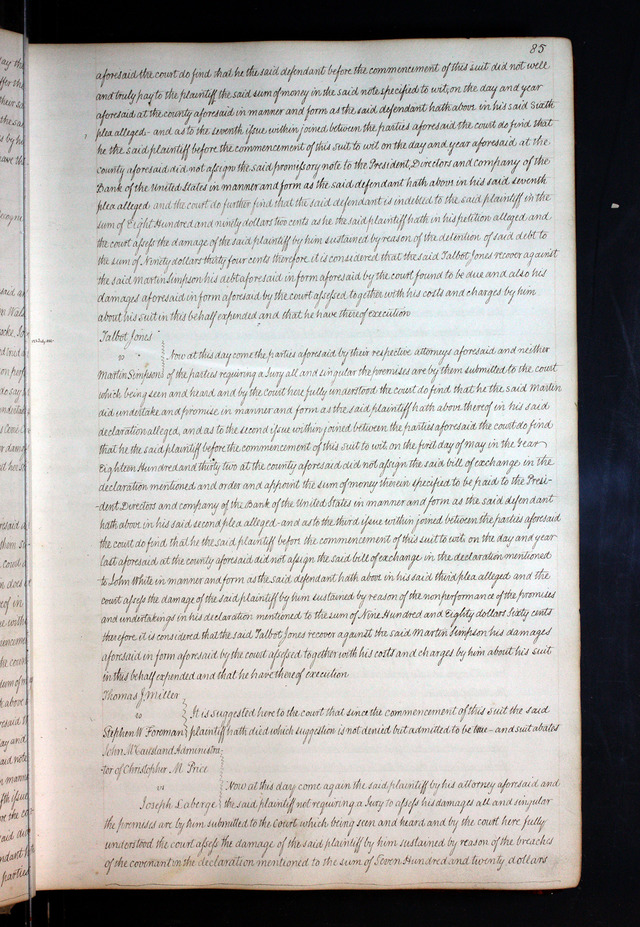 85
aforesaid the court do find that he the said defendant before the commencement of this suit did not well
and truly pay to the plaintiff the said sum of money in the said note specified to wit, on the day and year
aforesaid at the county aforesaid in manner and form as the said defendant hath above in his said Sixth
plea alleged - and as to the seventh issue within joined between the parties aforesaid the court do find that
he the said plaintiff before the commencement of this suit to wit on the day and year aforesaid at the
county aforesaid did not assign the said promissory note to the President, Directors and company of the
Bank of the United States in manner and form as the said defendant hath above in his said seventh
plea alleged and the court do further find that the said defendant is indebted to the said plaintiff in the
sum of Eight Hundred and ninety dollars two cents as he the said plaintiff hath in his petition alleged and
the court assess the damage of the said plaintiff by him sustained by reason of the detention of said debt to
the sum of Ninety dollars thirty four cents therefore it is considered that the said Talbot Jones recover against
the said Martin Simpson his debt aforesaid in form aforesaid by the court found to be due and also his
damages aforesaid in form aforesaid by the court assessed together with his costs and charges by him
about his suit in this behalf expended and that he have thereof execution
Talbot Jones
vs Now at this day come the parties aforesaid by their respective attorneys aforesaid and neither
Martin Simpson of the parties requiring a Jury all and singular the premises are by them submitted to the court
which being seen and heard and by the court here fully understood the court do find that he the said Martin
did undertake and promise in manner and form as the said plaintiff hath above thereof in his said
declaration alleged, and as to the second issue within joined between the parties aforesaid the court do find
that he the said plaintiff before the commencement of this suit to wit on the first day of May in the Year
Eighteen Hundred and thirty two at the county aforesaid did not assign the said bill of exchange in the
declaration mentioned and order and appoint the sum of money therein specified to be paid to the Presi-
-dent Directors and company of the Bank of the United States in manner and form as the said defendant
hath above in his said second plea alleged - and as to the third issue within joined between the parties aforesaid
the court do find that he the said plaintiff before the commencement of this suit to wit on the day and year
last aforesaid at the county aforesaid did not assign the said bill of exchange in the declaration mentioned
to John White in manner and form as the said defendant hath above in his said third plea alleged and the
court assess the damage of the said plaintiff by him sustained by reason of the nonperformance of the promises
and undertakings in his declaration mentioned to the sum of Nine Hundred and Eighty dollars Sixty cents
therefore it is considered that the said Talbot Jones recover against the said Martin Simpson his damages
aforesaid in form aforesaid by the court assessed together with his costs and charges by him about his suit
in this behalf expended and that he have thereof execution
Thomas J Miller
vs It is suggested here to the court that since the commencement of this suit the said
Stephen W Foreman plaintiff hath died which suggestion is not denied but admitted to be true - and suit abates
John McCausland Administra
tor of Christopher M. Price
vs Now at this day come again the said plaintiff by his attorney aforesaid and
Joseph Laberge the said plaintiff not requiring a Jury to assess his damages all and singular
the premises are by him submitted to the Court which being seen and heard and by the court here fully
understood the court assess the damage of the said plaintiff by him sustained by reason of the breaches
of the covenant in the declaration mentioned to the sum of Seven Hundred and twenty dollars